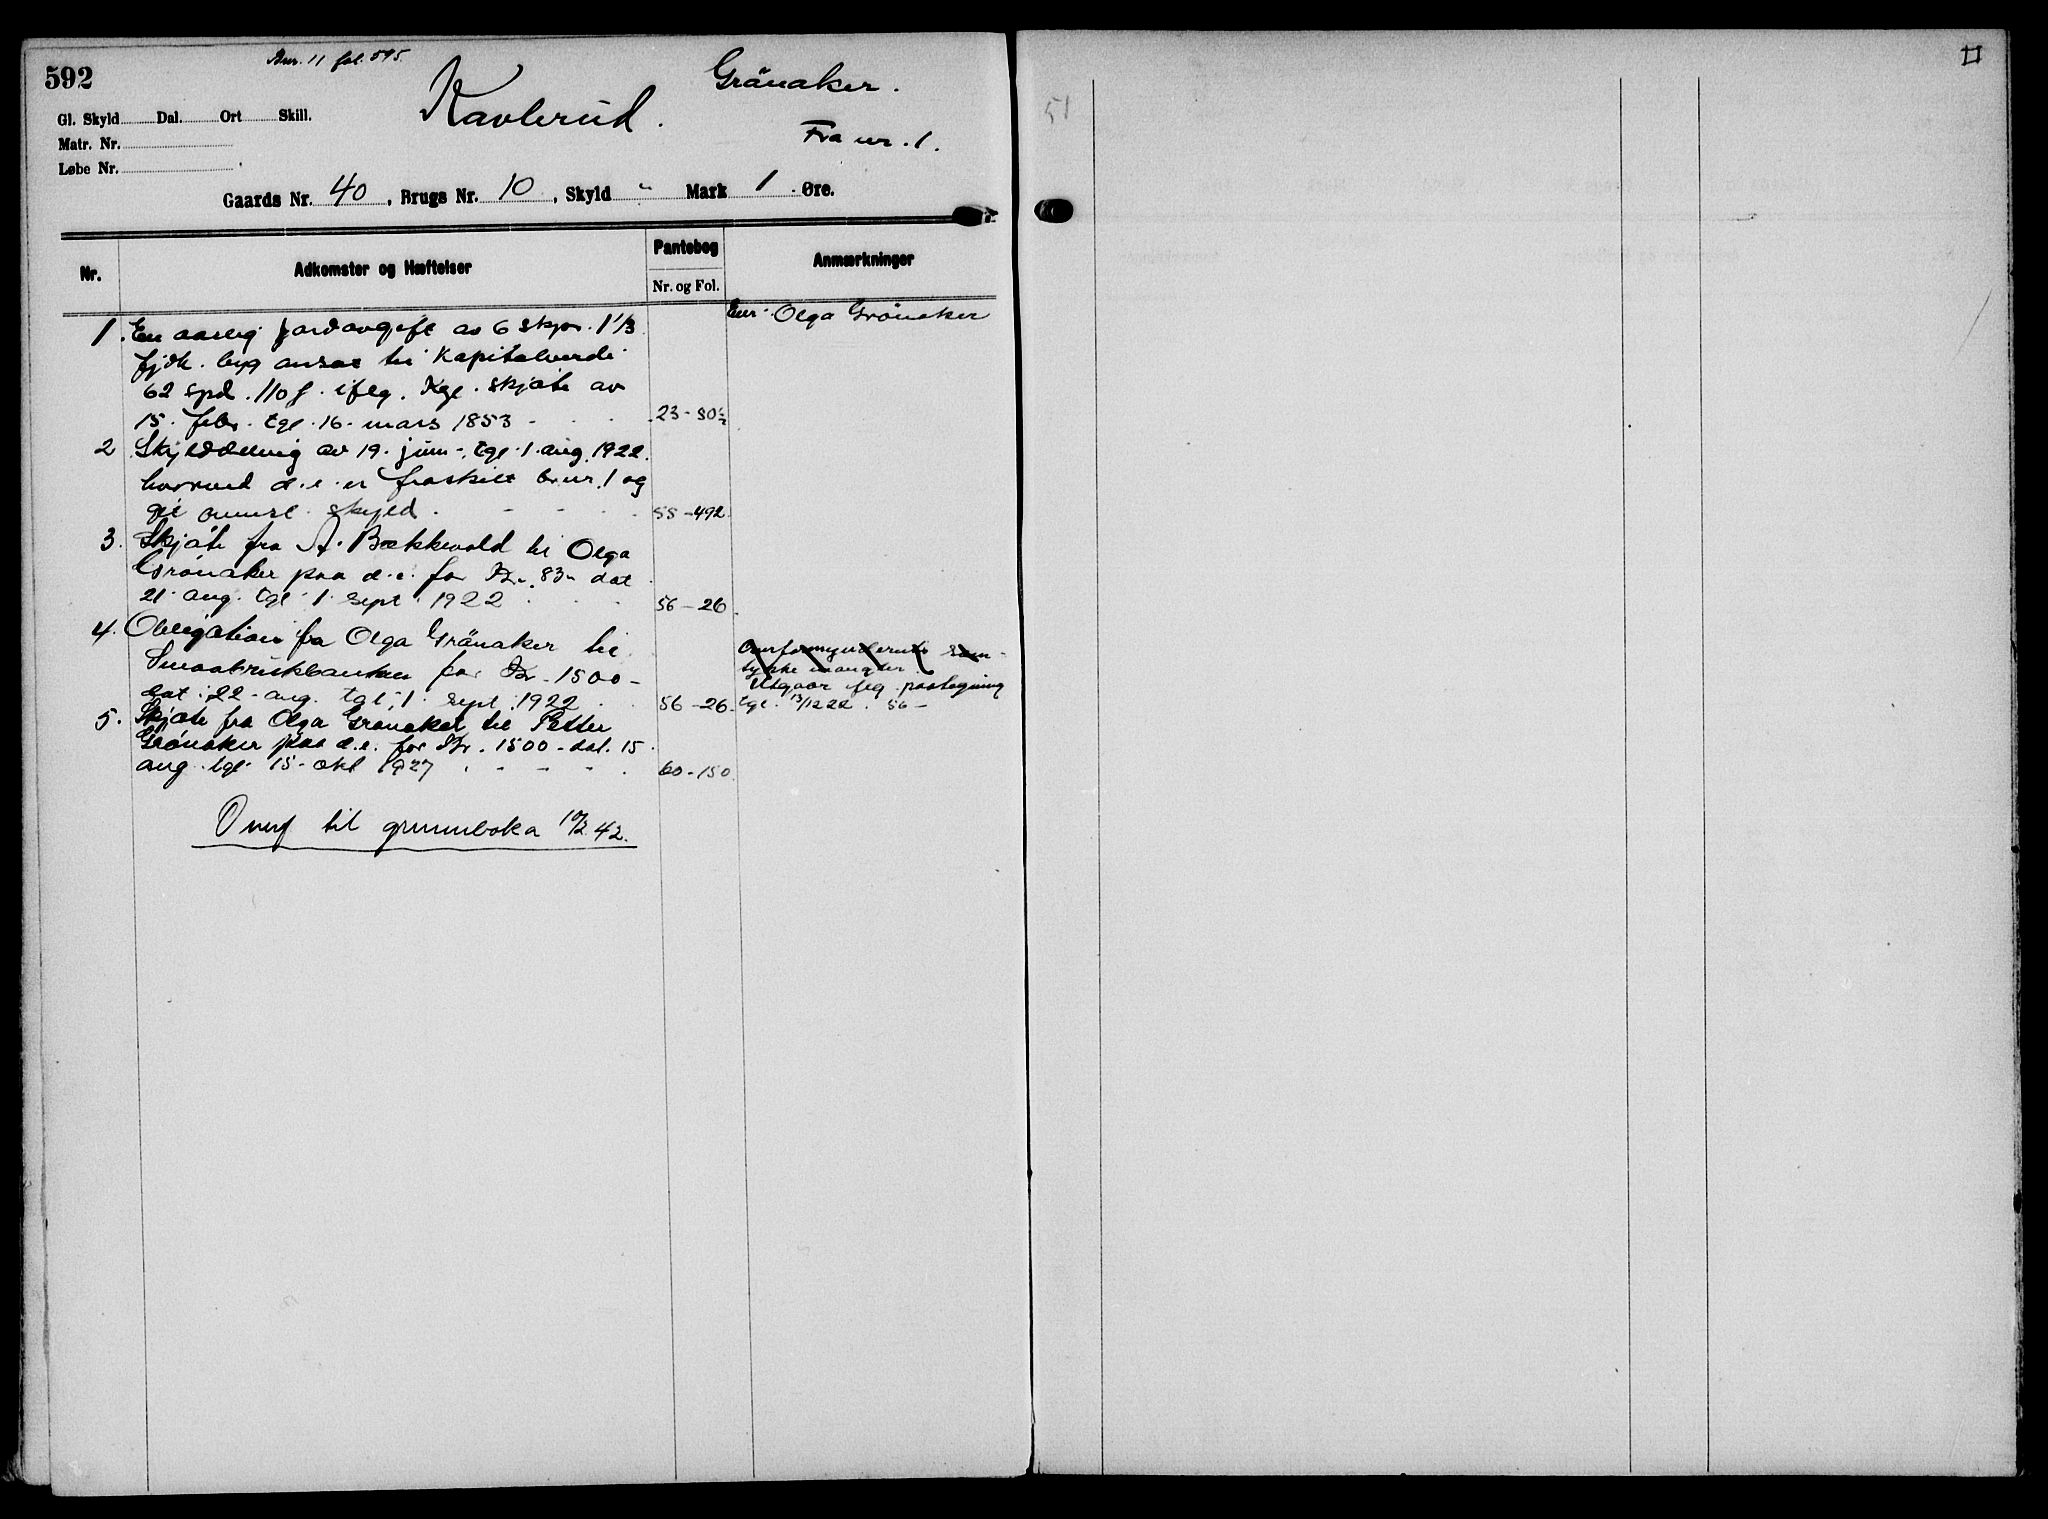 592
Bnr. 11 fol. 595.
Kavlerud.
Grönaker.
Fra nr. 1.
Gl. Skyld Dal. Ort Skill.
Matr. Nr.
Løbe Nr.
Gaards Nr. 40, Brugs Nr. 10, Skyld " Mark 1 Øre.
Nr. Adkomster og Hæftelser Pantebog Anmærkninger
Nr. og Fol.
Eier: Olga Grönaker
1. En aarlig jordavgift av 6 skjpr. 1 1/3
fjdk. byg ansat til Kapitalverdi
62 spd. 110 s. ifølg. Kgl. skjøte av
15. febr. tgl. 16. mars 1853 - 23-80
2 Skylddeling av 19. juni - tgl. 1. aug. 1922
hvorved d.e. er fraskilt bnr. 1 og
git anmrl. skyld. - - - 55-492.
3. Skjøte fra A. Bækkevold til Olga
Grönaker paa d.e. for Kr. 83- dat
21. aug. tgl. 1. sept. 1922 56-26
4. Obligation fra Olga Grönaker til
Smaabrukbanken for Kr. 1500-
dat. 22. aug. tgl. 1. sept. 1922 56-26.
Overformynderiets sam-
tykke mangler
Utgaar iflg. paategning
tgl. 13/12 22. 56-
5. Skjøte fra Olga Grønaker til Petter
Grønaker paa d.e. for Kr. 1500- dat. 15
aug. tgl. 15. okt 1927 - - - 60-150.
Overf til grunnboka 10/2 42.
51